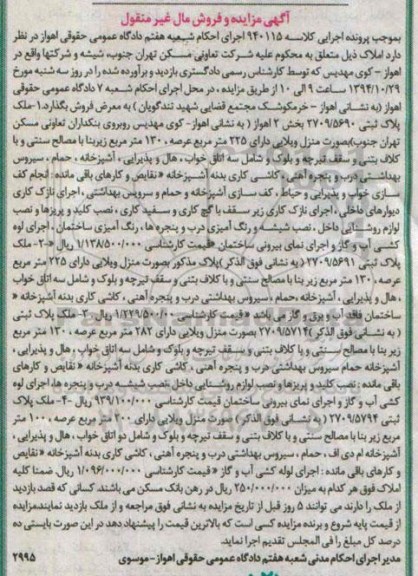 آگهی مزایده و فروش مال غیر منقول
بموجب پرونده اجرایی کلاسه ۹۴۰۱۱۵ اجرای احکام شعبه هفتم دادگاه عمومی حقوقی اهواز در نظر
دارد املاک ذیل متعلق به محکوم علیه شرکت تعاونی مسکن تهران جنوب، شیشه و شرکتها واقع در
اهواز – کوی مهدیس که توسط کارشناس رسمی دادگستری بازدید و برآورده شده را در روز سه شنبه مورخ
۱۳۹۴/۱۰/۲۹ ساعت ۹ الی ۱۰ از طریق مزایده ، در محل اجرای احکام شعبه ۷ دادگاه عمومی حقوقی
اهواز (به نشانی اهواز – خرمکوشک مجتمع قضایی شهید تندگویان ) به معرض فروش بگذارد.۱-ملک
پلاک ثبتی ۲۷۰۹/۵۶۹۰ بخش ۲ اهواز ( به نشانی اهواز- کوی مهدیس روبروی بنکداران تعاونی مسکن
تهران جنوب)بصورت منزل ویلایی دارای ۲۲۵ متر مربع عرصه ، ۱۳۰ متر مربع زیربنا با مصالح سنتی و با
کلاف بتنی و سقف تیرچه و بلوک و شامل سه اتاق خواب ، هال و پذیرایی ، آشپزخانه ، حمام ، سیروس
بهداشتی درب و پنجره آهنی ، کاشی کاری بدنه آشپزخانه «نقایص و کارهای باقی مانده : انجام کف
سازی خواب و پذیرایی و حیاط ، کف سازی آشپزخانه و حمام و سرویس بهداشتی ، اجرای نازک کاری
دیوارهای داخلی ، اجرای نازک کاری زیر سقف با گچ کاری و سفید کاری ، نصب کلید و پریزها و نصب
لوازم روشنایی داخل ، نصب شیشه و رنگ آمیزی درب و پنجره ها ، رنگ آمیزی ساختمان ، اجرای لوله
کشی آب و گاز و اجرای نمای بیرونی ساختمان «قیمت کارشناسی ۱/۱۳۸/۵۰۰/۰۰۰ ریال »-۲-ملک
پلاک ثبتی ۲۷۰۹/۵۶۹۱ ( به نشانی فوق الذکر )پلاک مذکور بصورت منزل ویلایی دارای ۲۲۵ متر مربع
عرصه ، ۱۳۰ متر مربع زیر بنا با مصالح سنتی و با کلاف بتنی و سقف تیرچه و بلوک و شامل سه اتاق خواب
، هال و پذیرایی ، آشپزخانه ،حمام ،سیروس بهداشتی درب و پنجره آهنی ، کاشی کاری بدنه آشپزخانه «
ساختمان فاقد آب و برق و گاز می باشد « قیمت کارشناسی ۱/۲۲۹/۵۰۰/۰۰۰ ریال ۳-ملک پلاک ثبتی
( به نشانی فوق الذکر )۲۷۰۹/۵۷۱۴ بصورت منزل ویلایی دارای ۲۸۲ متر مربع عرصه ، ۱۳۰ متر مربع
زیر بنا با مصالح سنتی و با کلاف بتنی و سقف تیرچه و بلوک و شامل سه اتاق خواب ، هال و پذیرایی ،
آشپزخانه حمام سیروس بهداشتی درب و پنجره آهنی ، کاشی کاری بدنه آشپزخانه «نقایص و کارهای
باقی مانده : نصب کلید و پریزها و نصب لوازم روشنایی داخل ،نصب شیشه درب و پنجره ها، اجرای لوله
کشی آب و گاز و اجرای نمای بیرونی ساختمان قیمت کارشناسی ۹۳۹/۱۰۰/۰۰۰ ریال -۴- ملک پلاک
ثبتی ۲۷۰۹/۵۷۹۴ ( به نشانی فوق الذکر) بصورت منزل ویلایی دارای ۲۰۰ متر مربع عرصه ، ۱۰۰ متر
مربع زیر بنا با مصالح سنتی و با کلاف بتنی و سقف تیرچه و بلوک و شامل دو اتاق خواب ، هال و پذیرایی ،
آشپزخانه ام دی اف ، حمام ، سیروس بهداشتی درب و پنجره آهنی ، کاشی کاری بدنه آشپزخانه «نقایص
و کارهای باقی مانده : اجرای لوله کشی آب و گاز « قیمت کارشناسی ۱/۰۹۶/۰۰۰/۰۰۰ ریال ضمنا کلیه
املاک فوق هر کدام به میزان ۲۵۰/۰۰۰/۰۰۰ ریال در رهن بانک مسکن می باشند. کسانی که قصد بازدید
از ملک را دارند می توانند ۵ روز قبل از تاریخ مزایده به نشانی فوق مراجعه و از ملک بازدید نمایند.مزایده
از قیمت پایه شروع و برنده مزایده کسی است که بالاترین قیمت را پیشنهاد دهد در این صورت بایستی ده
درصد کل مبلغ را فی المجلس تقدیم اجرا نماید.
مدیر اجرای احکام مدنی شعبه هفتم دادگاه عمومی حقوقی اهواز – موسوی ۲۹۹۵